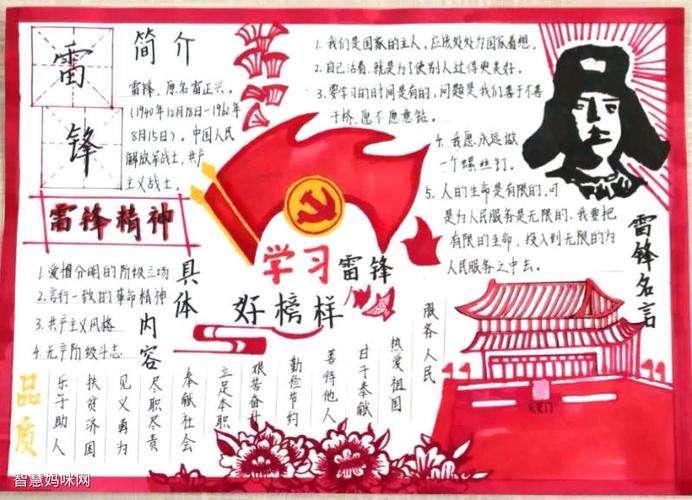 雷锋
简介
雷锋、原名雷正兴。
(1940年12月18日-1962年
8月15日)。中国人民
解放军战士,共产
主义战士。
雷锋精神
1.爱憎分明的阶级立场
2.言行一致的革命精神
3.共产主义风格
4.无产阶级斗志
具体内容
学习雷锋
好榜样
1.我们是国家的主人,应该处处为国家着想。
2.自己活着,就是为了使别人过得更美好。
3.要学习的时间是有的,问题是我们善于不善
于挤,愿不愿意钻。
4.我愿永远做
一个螺丝钉。
5.人的生命是有限的,可
是为人民服务是无限的,我要把
有限的生命,投入到无限的为
人民服务之中去。
雷锋名言
品质
乐于助人
扶贫济困
见义勇为
尽职尽责
奉献社会
立足本职
艰苦奋斗
勤俭节约
善待他人
甘于奉献
热爱祖国
服务人民
天安门
智慧妈咪网